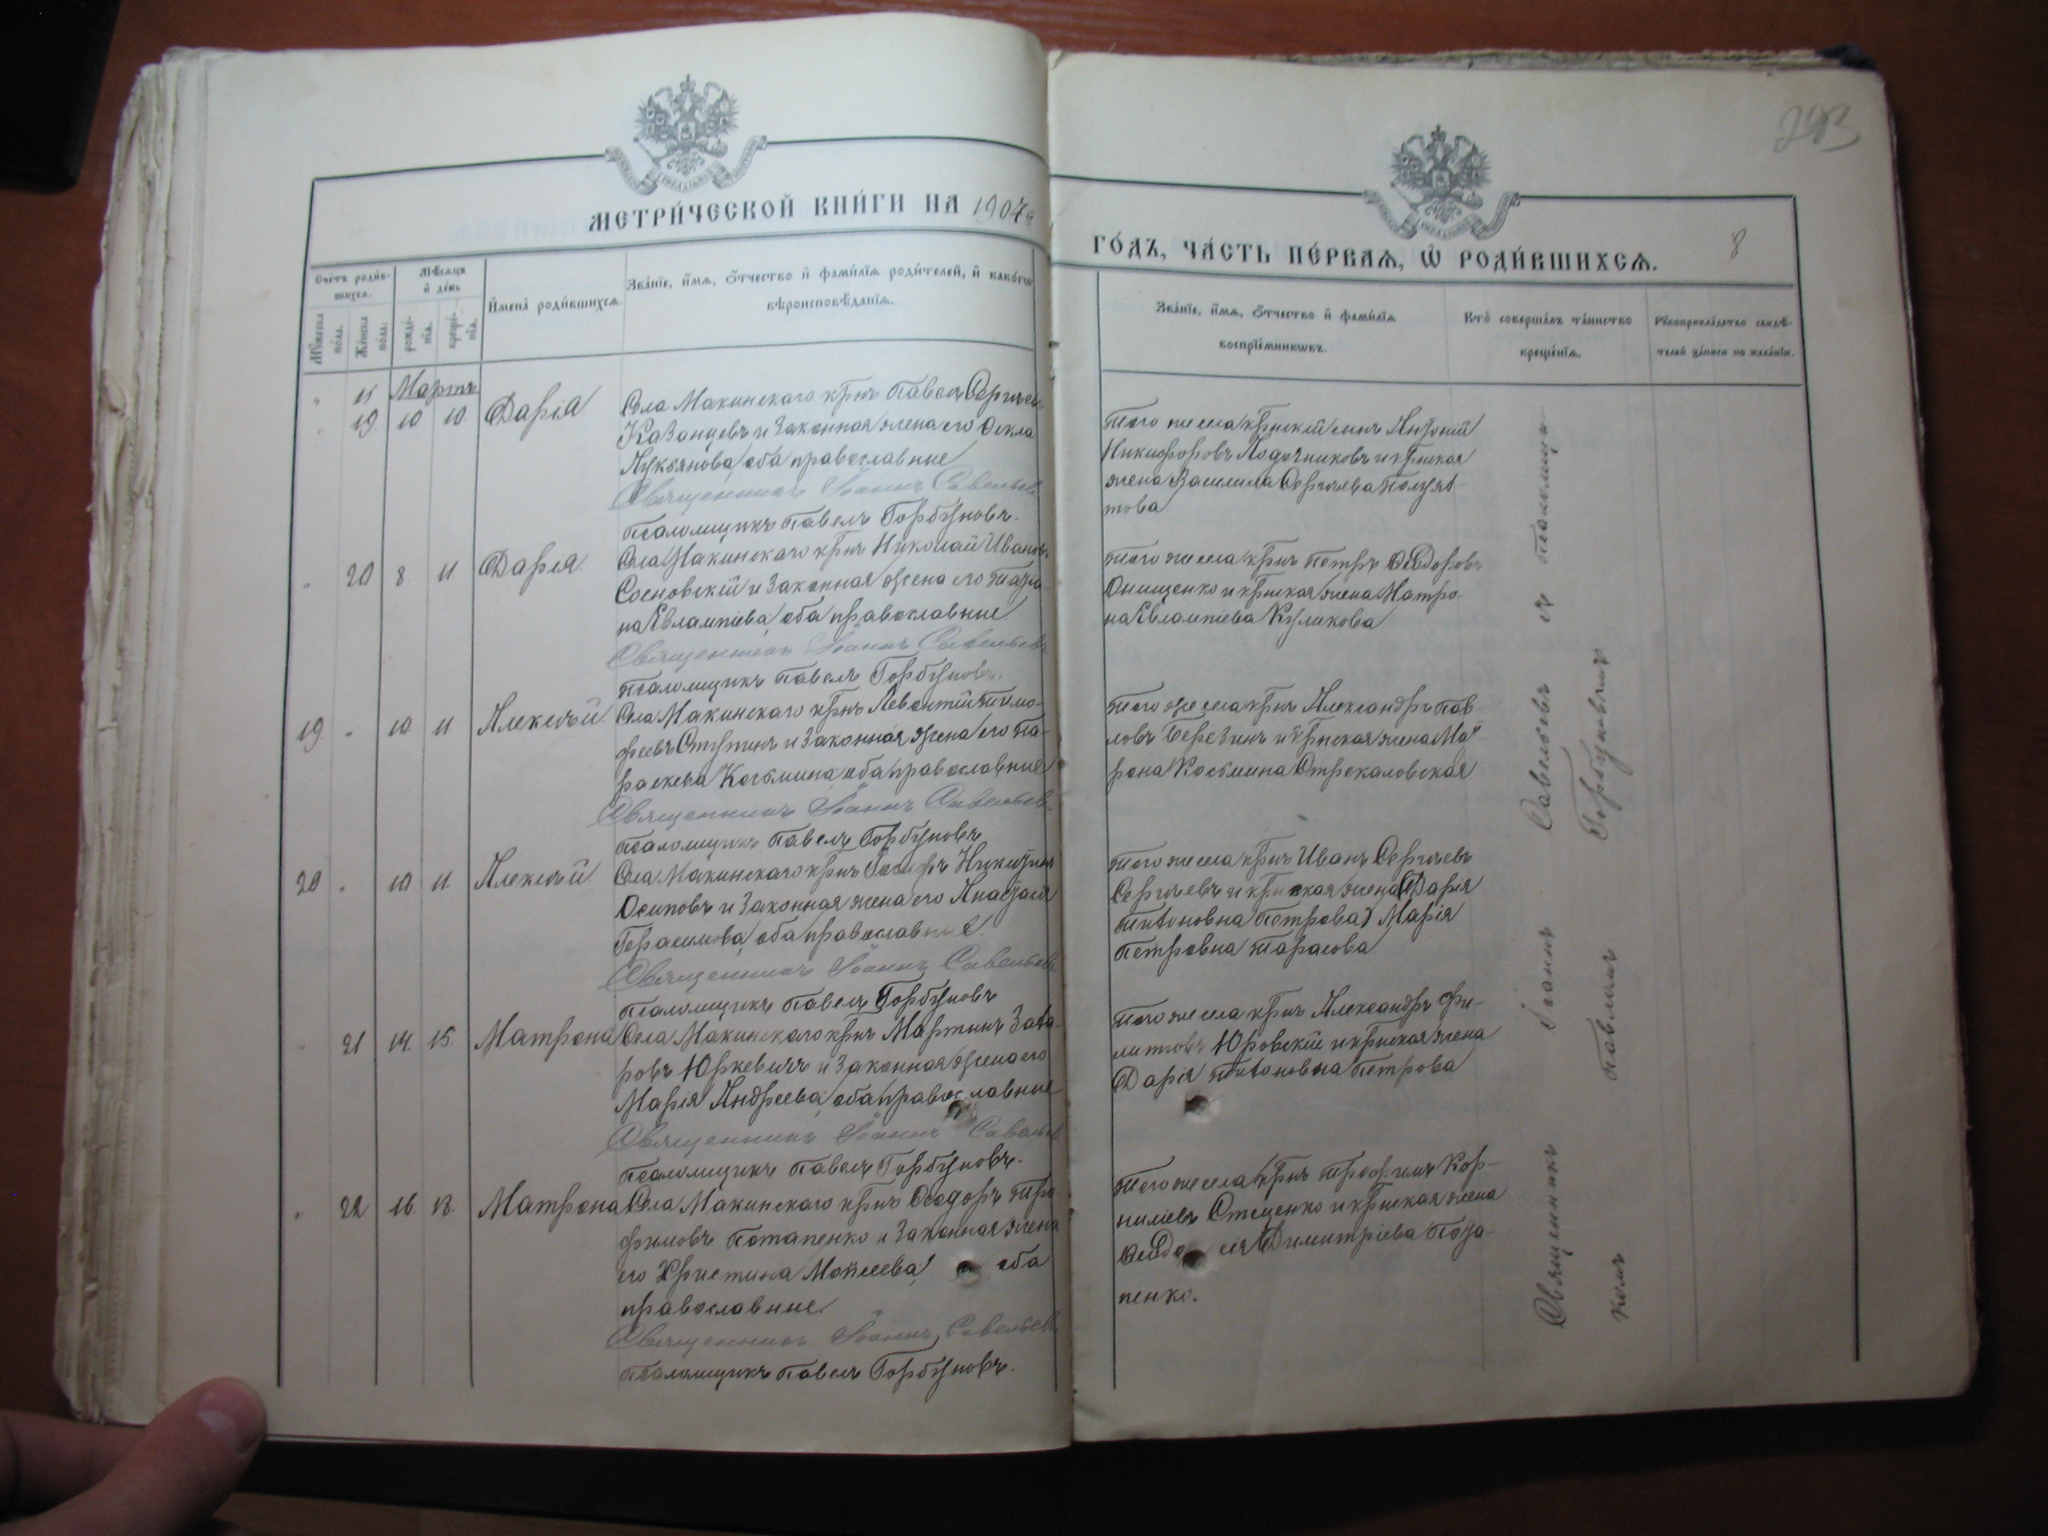 243
МЕТРИ́ЧЕСКОЙ КНИ́ГИ НА 1907
ГО́ДЪ, ЧА́СТЬ ПЕ́РВАЯ, Ѿ РОДИ́ВШИХСЯ.
8
Сче́тъ роди́в-
шихся.
Мѣ́сяцъ
и де́нь
Мꙋ́жеска
по́ла.
Же́нска
по́ла.
рожде́-
нїя.
креще́-
нїя.
И҆мена̀ роди́вшихся.
Зва́нїе, и҆́мя, ѻ҆́тчество и҆ фами́лїя роди́телей, и҆ како́гѡ
вѣроисповѣ́данїя.
Зва́нїе, и҆́мя, ѻ҆́тчество и҆ фами́лїя
воспрїе́мникѡвъ.
Кто̀ соверша́лъ та́инство
креще́нїя.
Рꙋкоприкла́дство свидѣ́-
телей за́писи по жела́нїю.
Мартъ
19 10 10 Дарія
Села Макинскаго крнъ Павелъ Сергѣевъ
Казанцевъ и законная жена его Текла
Лукьянова, оба православные
Священникъ Іоаннъ Савельевъ
Псаломщикъ Павелъ Горбуновъ.
Того же села крнскій сынъ Антоній
Никифоровъ Лодочниковъ и крнская
жена Василиса Сергѣева
20 8. 11. Дарія
Села Макинскаго крнъ Николай Ивановъ
Сосновскій и законная жена его Татіа
на Евлампіева, оба православные
Священникъ Іоаннъ Савельевъ
Псаломщикъ Павелъ Горбуновъ.
Того же села крнъ Петръ Ѳеодоровъ
Онищенко и крнская жена Матро
на Евлампіева Куликова
19 10 11 Алексѣй
Села Макинскаго крнъ Левонтій Тимо-
феевъ и законная жена его Па-
раскева Косьмина, оба православные
Священникъ Іоаннъ Савельевъ.
Псаломщикъ Павелъ Горбуновъ
Того же села крнъ Александръ Пав-
ловъ Березинъ и крнская жена Мат-
рона Косьмина Стрекаловская
20 10 11. Алексѣй
Села Макинскаго крнъ Іосифъ Никитинъ
Осиповъ и законная жена его Анастасія
Герасимова, оба православные.
Священникъ Іоаннъ Савельевъ
Псаломщикъ Павелъ Горбуновъ
Того же села крнъ Иванъ Сергѣевъ
Сергѣевъ и крнская жена (Дарія
Титовна Петрова) Марія
Петровна Тарасова
21 14. 15. Матрона
Села Макинскаго крнъ Мартинъ Заха-
ровъ Юркевичъ и законная жена его
Марія Андреева, оба православные
Священникъ Іоаннъ Савельевъ
Псаломщикъ Павелъ Горбуновъ.
Того же села крнъ Александръ Фи-
липповъ Юровскій и крнская жена
Дарія Петрова
22 16. 18. Матрона
Села Макинскаго крнъ Ѳеодоръ Тро-
фимовъ Потапенко и законная жена
его Христина Моисеева, оба
православные.
Священникъ Іоаннъ Савельевъ
Псаломщикъ Павелъ Горбуновъ.
Того же села крнъ Трофимъ Кор-
ниліевъ Стеценко и крнская жена
Димитріева Пота-
пенко.
Священникъ Іоаннъ Савельевъ съ псаломщи-
комъ Павломъ Горбуновымъ